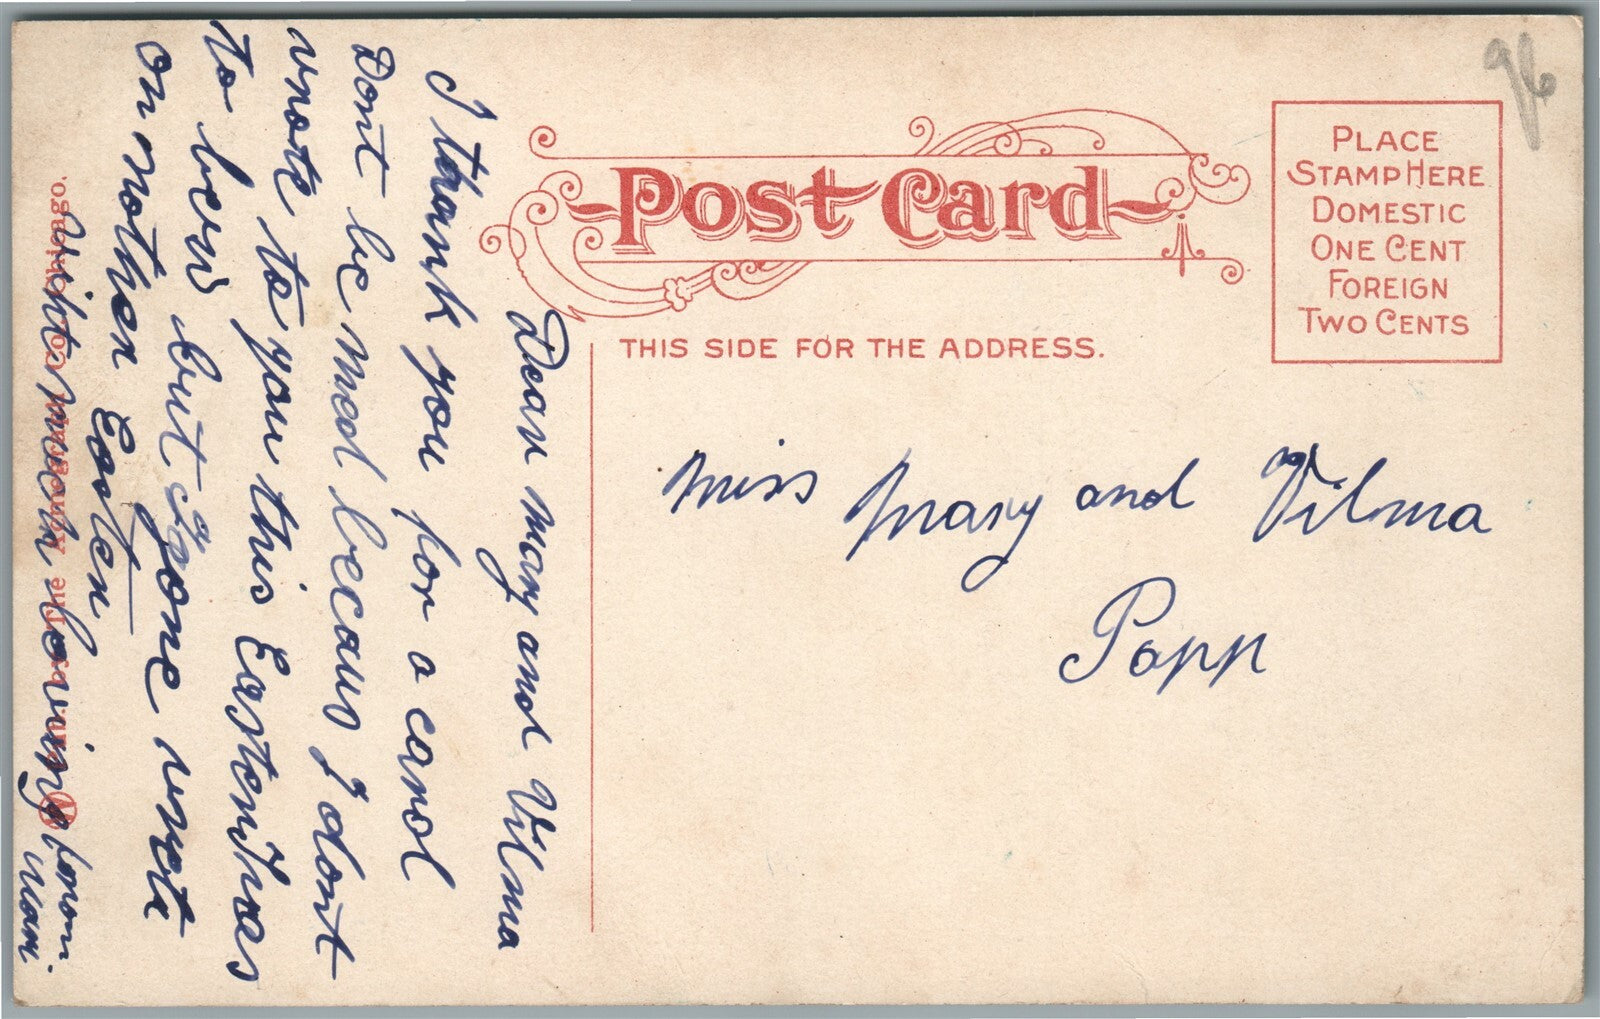 Post Card
PLACE
STAMP HERE
DOMESTIC
ONE CENT
FOREIGN
TWO CENTS
96
THIS SIDE FOR THE ADDRESS.
Miss Mary and Vilma
Popp
Dear Mary and Vilma
I thank you for a carol
Dont be mad becaus I dont
wrote to you this Eastern
to bew but gone wrete
on nothen Easten
with much loving from
Chicago.